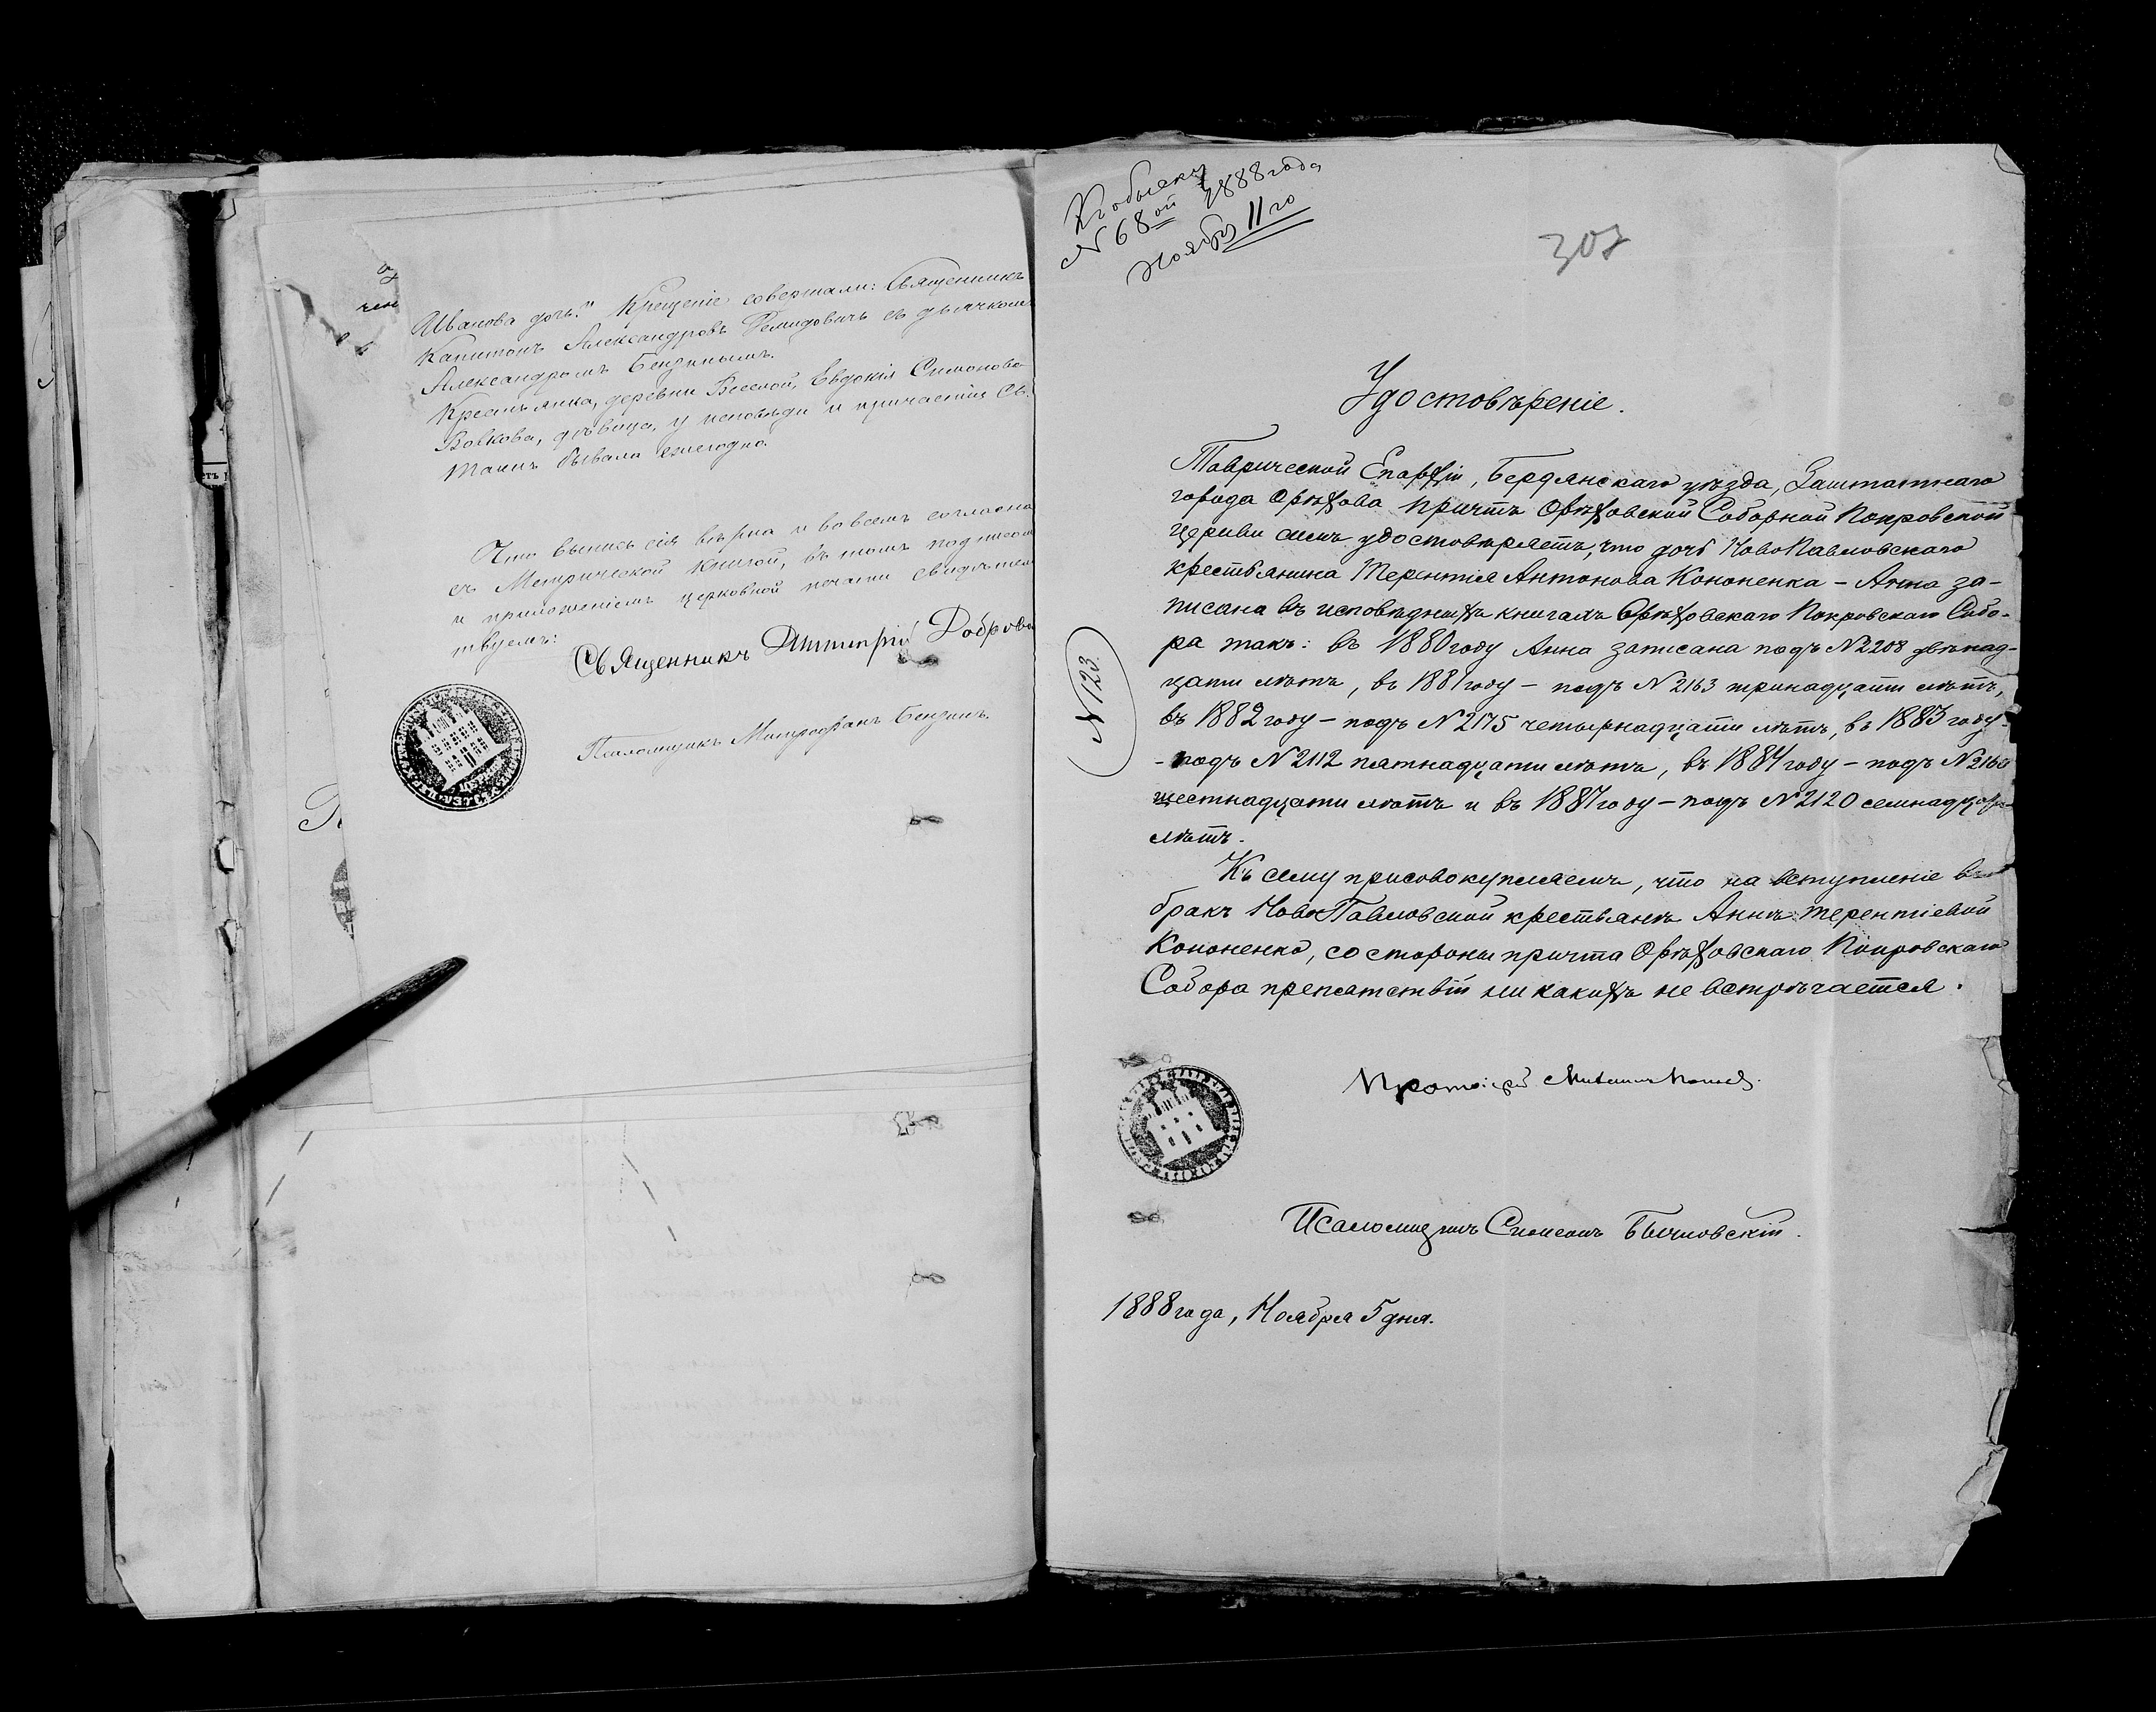 Иванова дочь." Крещеніе совершали: Священникъ
Капитонъ Александровъ Демидовичъ съ дьячкомъ
Александромъ Бензинымъ.
Крестьянка, деревни Веселой, Евдокія Симонова
Вовкова, дѣвица, у исповѣди и причастія Св.
Таинъ бывала ежегодно.
Что выпись сія вѣрна и во всемъ согласна
съ Метрической книгой, въ томъ подписом
и приложеніемъ церковной печати свидѣтель
твуемъ:
Священникъ Димитрій Добров
Псаломщикъ Митрофанъ Бензинъ.
Къ обыску
№ 68ой 1888 года
Ноября 11го
307
Удостовѣреніе.
Таврической Епархіи, Бердянскаго уѣзда, Заштатнаго
города Орѣхова причтъ Орѣховской Соборной Покровской
церкви симъ удостовѣряетъ, что дочь НовоПавловскаго
крестьянина Терентія Антонова Кононенка – Анна за-
писана въ исповѣдныхъ книгахъ Орѣховскаго Покровскаго Собо-
ра такъ: въ 1880 году Анна записана подъ № 2208 двѣнад-
цати лѣтъ, въ 1881 году – подъ № 2163 тринадцати лѣтъ,
въ 1882 году – подъ № 2175 четырнадцати лѣтъ, въ 1883 году-
- подъ № 2112 пятнадцати лѣтъ, въ 1884 году – подъ №
шестнадцати лѣтъ и въ 1887 году – подъ № 2120 семнадцати
лѣтъ.
№ 123
Къ сему присовокупляемъ, что на вступленіе въ
бракъ НовоПавловской крестьянкѣ Аннѣ Терентіевой
Кононенко, со стороны причта Орѣховскаго Покровскаго
Собора препятствій ни какихъ не встрѣчается.
Протоіерей
Псаломщикъ Симеонъ
1888 года, Ноября 5 дня.